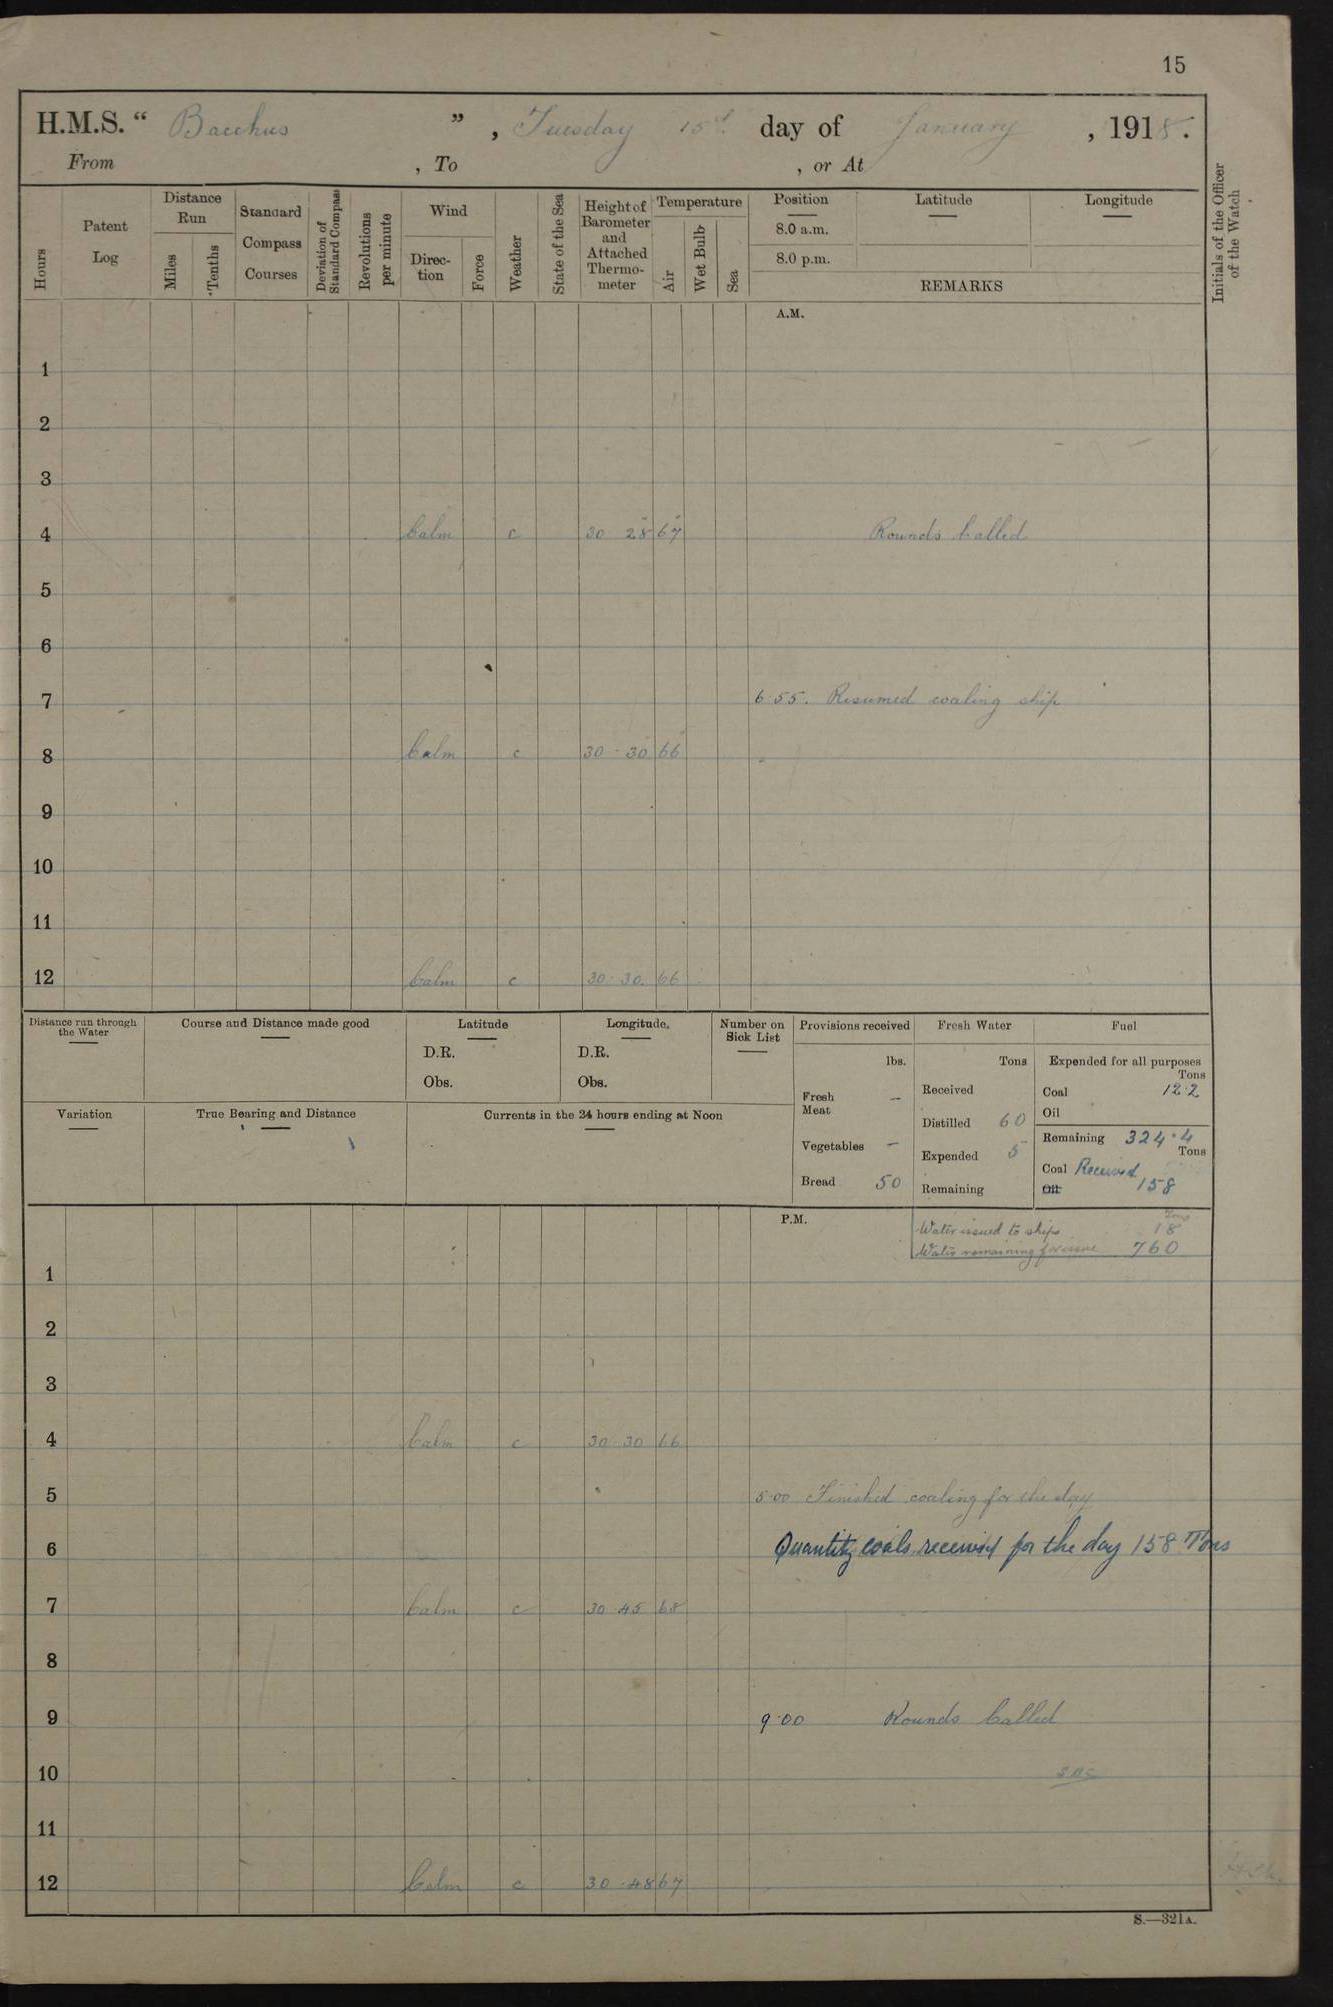 15
H.M.S. “ Bacchus ” , Tuesday 15th day of January , 1918.
From , To , or At
Hours
Patent Log
Distance Run
Miles
Tenths
Standard Compass Courses
Deviation of Standard Compass
Revolutions per minute
Wind
Direc-tion
Force
Weather
State of the Sea
Height of Barometer and Attached Thermo-meter
Temperature
Air
Wet Bulb
Sea
Position
8.0 a.m.
8.0 p.m.
Latitude
Longitude
REMARKS
Initials of the Officer of the Watch
A.M.
1
2
3
4 Calm c 30 28 67 Rounds Called
5
6
7 6.55. Resumed coaling ship
8 Calm c 30 · 30 66
9
10
11
12 Calm c 30 · 30 66
Distance run through the Water
Course and Distance made good
Latitude
D.R.
Obs.
Longitude.
D.R.
Obs.
Number on Sick List
Variation
True Bearing and Distance
Currents in the 24 hours ending at Noon
Provisions received
lbs.
Fresh Meat —
Vegetables —
Bread 50
Fresh Water
Tons
Received
Distilled 60
Expended 5
Remaining
Fuel
Expended for all purposes
Tons
Coal 12·2
Oil
Remaining 324·4
Tons
Coal Received
Oil 158
P.M.
Tons
Water issued to ships 18
Water remaining for issue 760
1
2
3
4 Calm c 30 30 66
5 5·00 Finished coaling for the day
6 Quantity coals received for the day 158 Tons
7 Calm c 30 45 68
8
9 9·00 Rounds Called
10
11
12 Calm c 30 · 48 67
S.—321A.